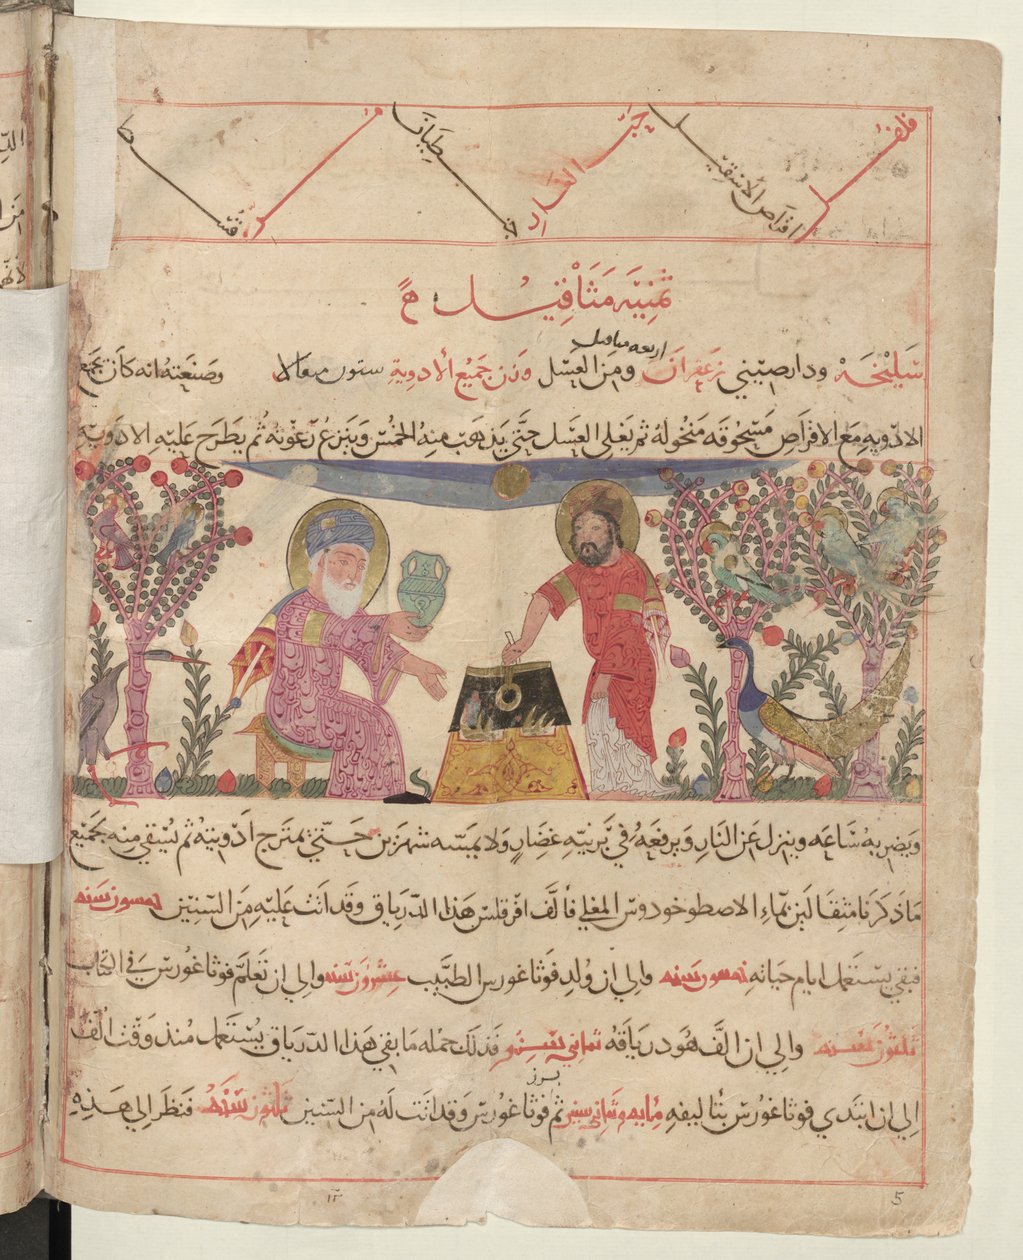 فلفل اقراص الاسقيل حب الغار
ثمنية مثاقيل
سليخة ودارصيني زعفران اربعه مثاقيل ومن العسل وزن جميع الادوية ستون مثقالا وصنعته انه كان يجمع
الادويه مع الاقراص مسحوقه منخوله ثم يغلي العسل حتي يذهب منه الخمس وينزع رغوته ثم يطرح عليه الادويه
ويضربه ساعه وينزل عن النار ويرفعه في برنيه غضار ولا يمسه شهرين حتي يمتزج ادويته ثم يسقي منه لجميع
ما ذكرنا مثقالين بماء الاصطوخودوس المغلي فألف افرقلس هذا الدرياق وقد اتت عليه من السنين خمسون سنه
فبقي يستعمل ايام حياته خمسون سنه والي ان ولد فوثاغورس الطبيب عشرون سنه والي ان تعلم فوثاغورس في الكتاب
ثلثون سنه والي ان الف هو درياقه ثماني سنين فذلك جمله ما بقي هذا الدرياق يستعمل منذ وقت الف
الي ان ابتدي فوثاغورس بتاليفه مايه وثماني سنين ثم برز فوثاغورس وقد اتت له من السنين ثلثون سنه فنظر الي هذه
١٢
5